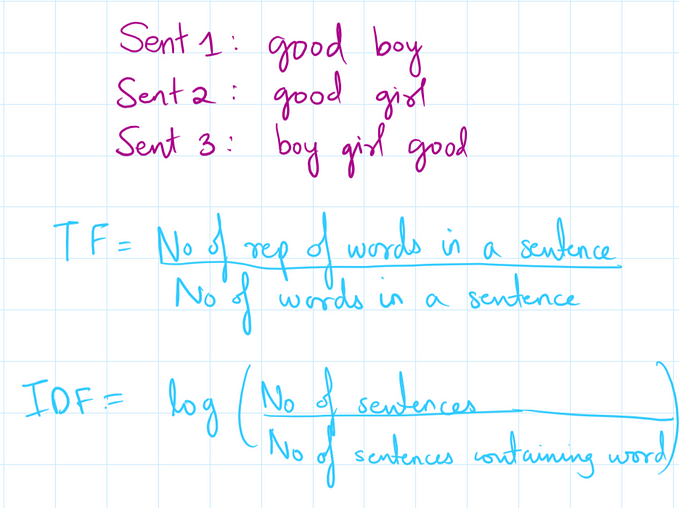 Sent 1: good boy
Sent 2: good girl
Sent 3: boy girl good
TF = No of rep of words in a sentence
No of words in a sentence
IDF = log (No of sentences
No of sentences containing word)